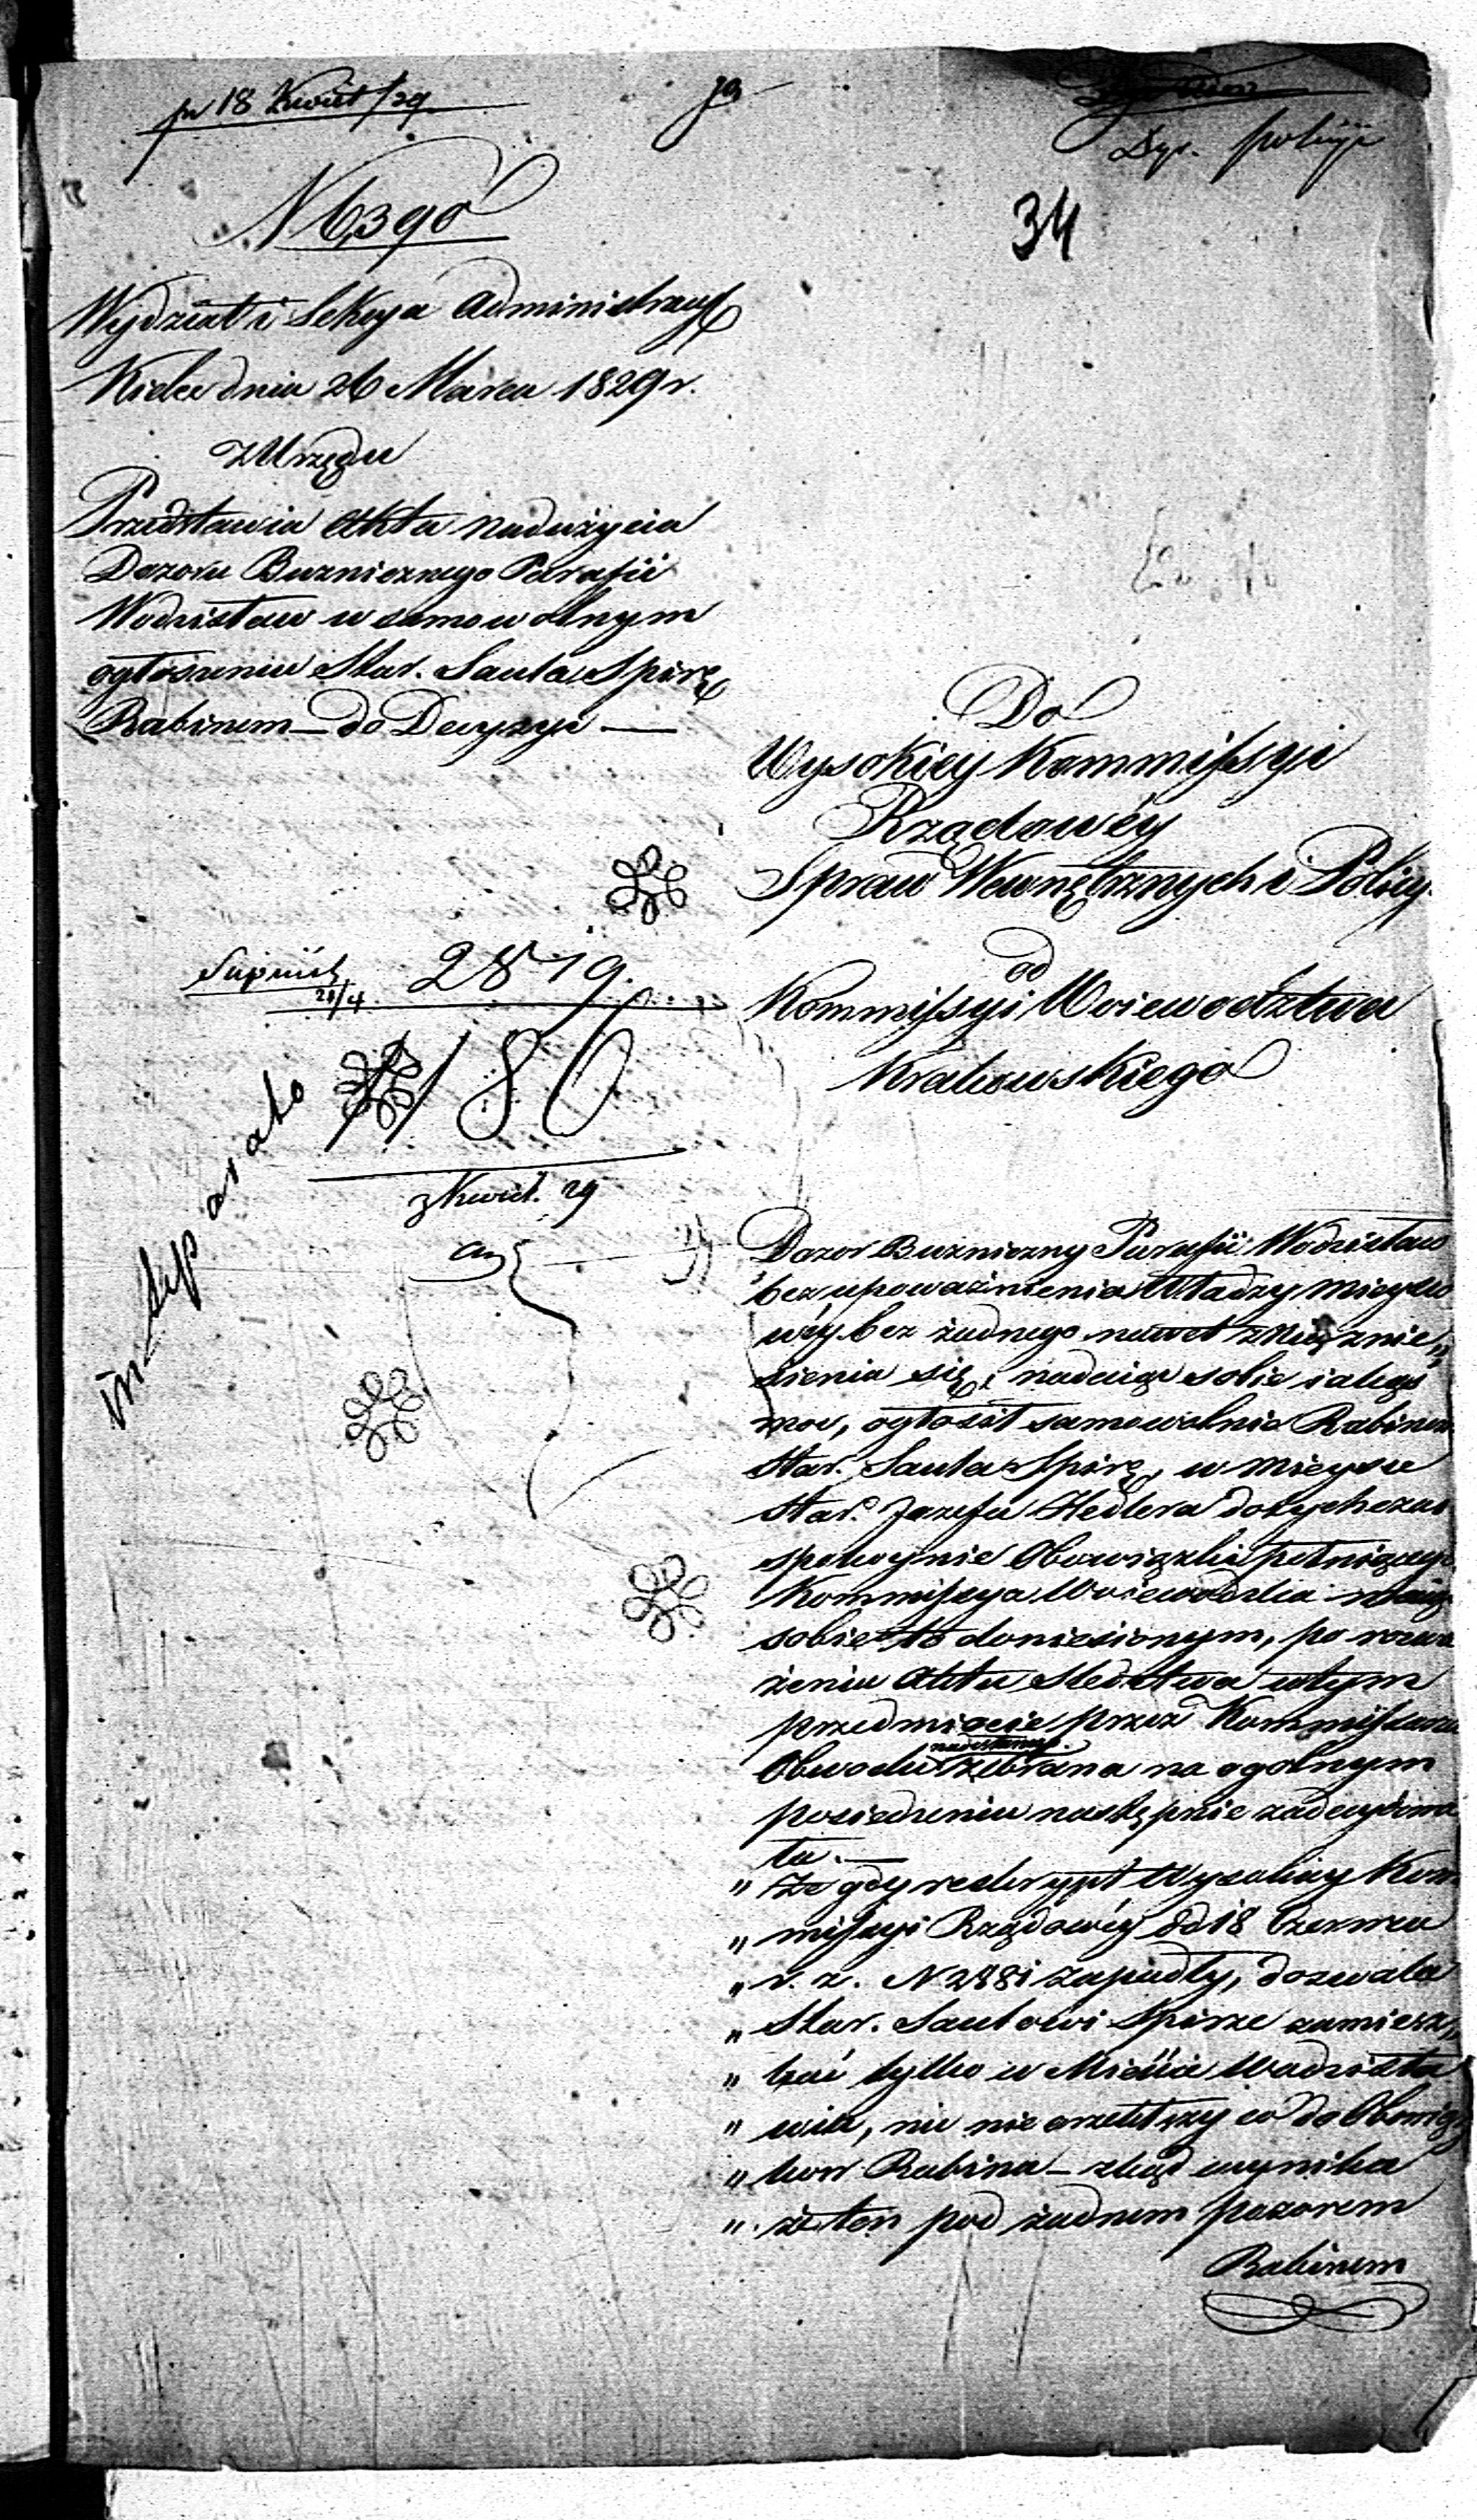 pr 18 Kwiet/29
Dyr. Policyi
34
N 6390
Wydział i Sekcya Administracy
Kielce dnia 26 Marca 1829 r.
z Urzędu
Przedstawia Akta nadużycia
Dozoru Bużnicznego Parafii
Wodzisław w samowolnym
ogłoszeniu Star. Saula Spirę
Rabinem – do Decyzyi —
Do
Wysokiey Kommissyi
Rządowéy
Spraw Wewnętrznych i Policyi
od
Kommissyi Woiewództwa
Krakowskiego
28/4 2819.
180
in separato
z Kwiet. 29
Dozor Bużniczny Parafii Wodzisław
bez upoważnienia Władzy mieysco
wéy bez żadnego nawet z nią znie„
sienia się, nadaiąc sobie
moc, ogłosił samowolnie Rabinem
Star. Saula Spirę, w mieysce
Star. Jozefa Hedlera dotychczas
spokoynie Obowiązki pełniącego
Kommissya Woiewodzka maiąc
sobie to doniesionym, po rozwa
żeniu Aktu Sledztwa w tym
przedmiocie przez Kommissarza
Obwodu nadesłanego zebrana na ogolnym
posiedzeniu następnie zadecydowa
ła. —
„ Że gdy reskrypt Wysokiey Kom
„ missyi Rządowéy dd 18 Czerwca
„ r. z. N 2881 zapadły, dozwala
„ Star. Saulowi Spirze zamiesz„
„ kać tylko w Mieście Wodzisła
„ wiu, nic nie orzekłszy co do Obowiąz
„ kow Rabina – zkąd wynika
„ że ten pod żadnem pozorem
Rabinem